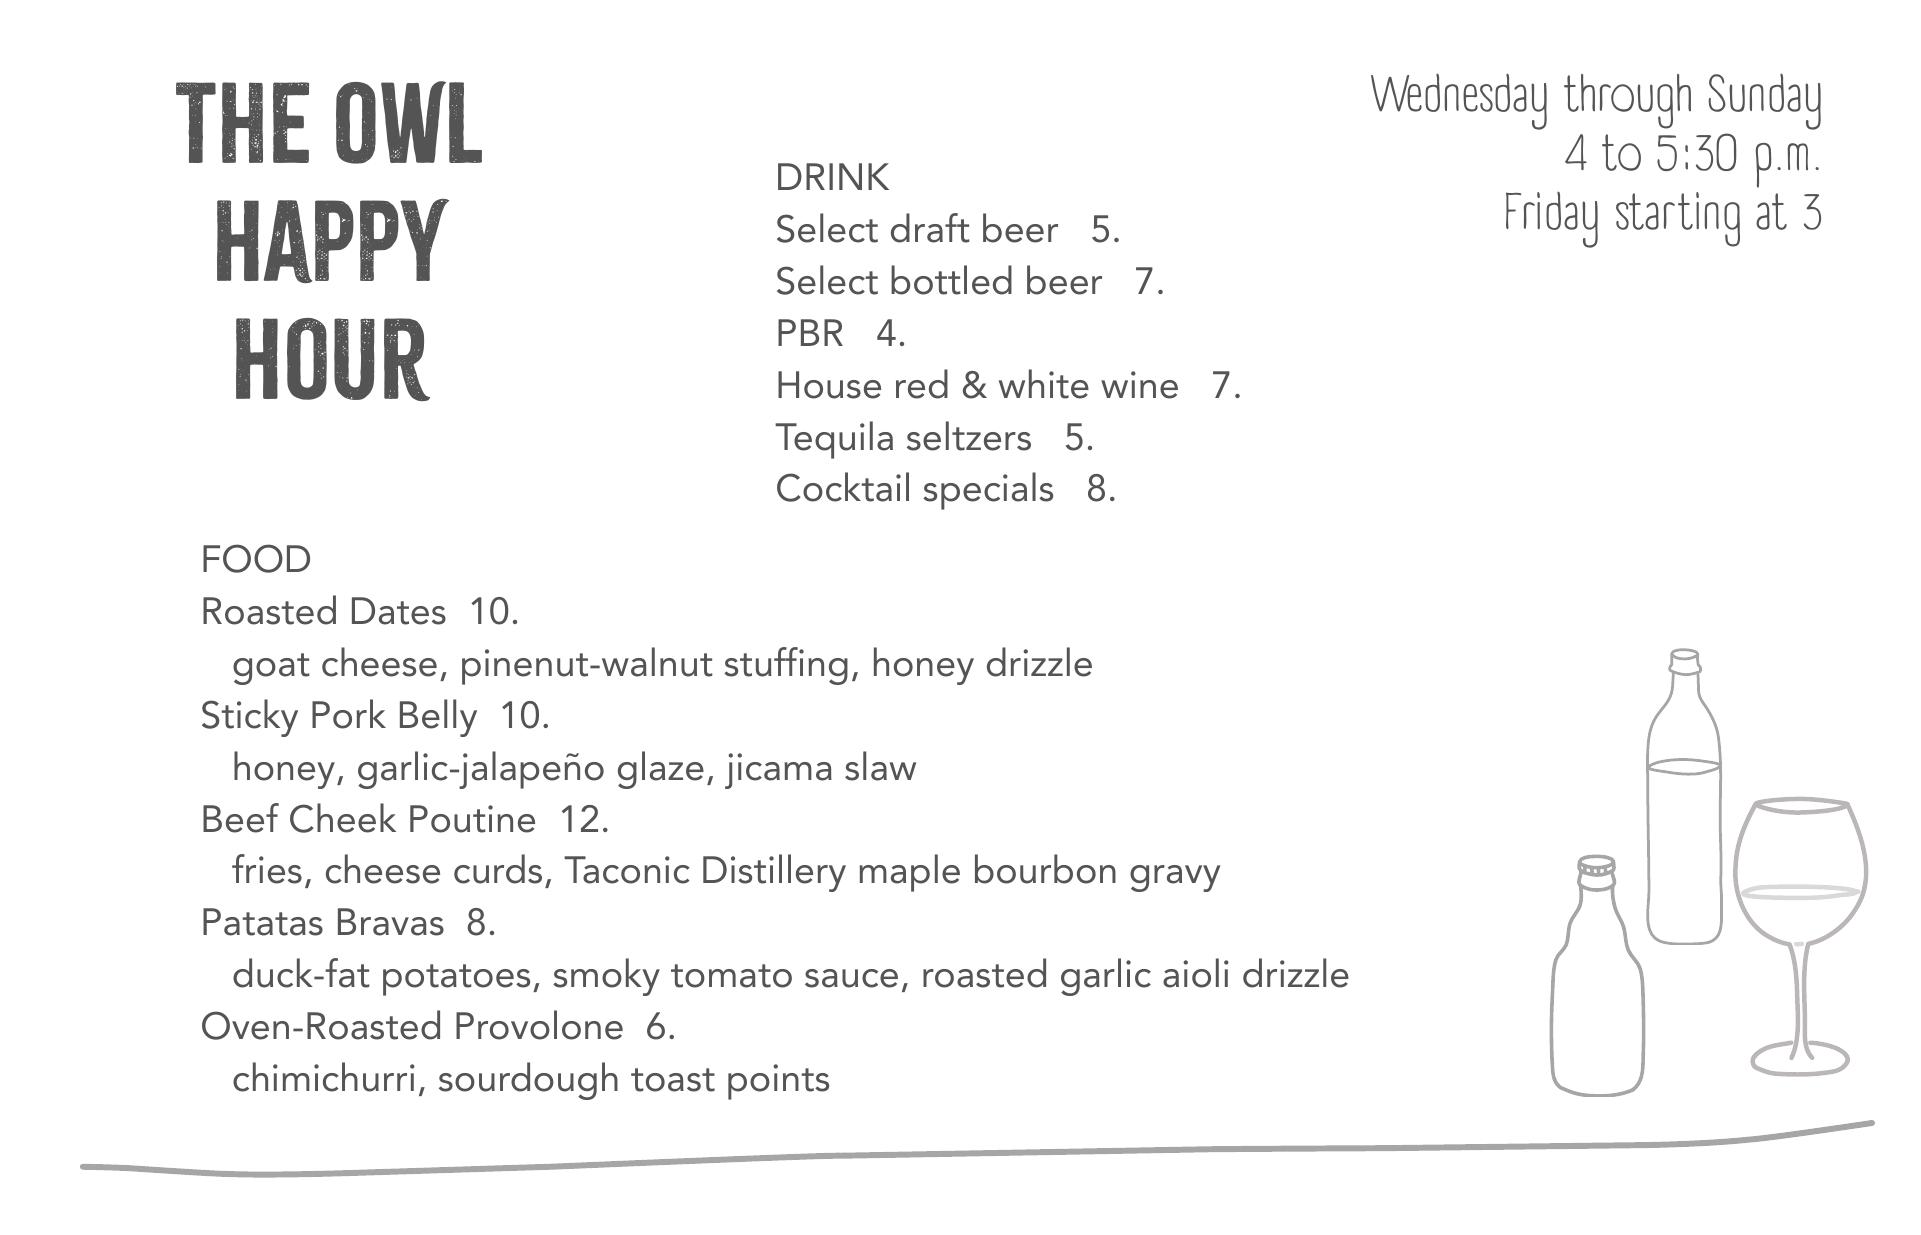 THE OWL
HAPPY
HOUR
Wednesday through Sunday
4 to 5:30 p.m.
Friday starting at 3
DRINK
Select draft beer 5.
Select bottled beer 7.
PBR 4.
House red & white wine 7.
Tequila seltzers 5.
Cocktail specials 8.
FOOD
Roasted Dates 10.
goat cheese, pinenut-walnut stuffing, honey drizzle
Sticky Pork Belly 10.
honey, garlic-jalapeño glaze, jicama slaw
Beef Cheek Poutine 12.
fries, cheese curds, Taconic Distillery maple bourbon gravy
Patatas Bravas 8.
duck-fat potatoes, smoky tomato sauce, roasted garlic aioli drizzle
Oven-Roasted Provolone 6.
chimichurri, sourdough toast points